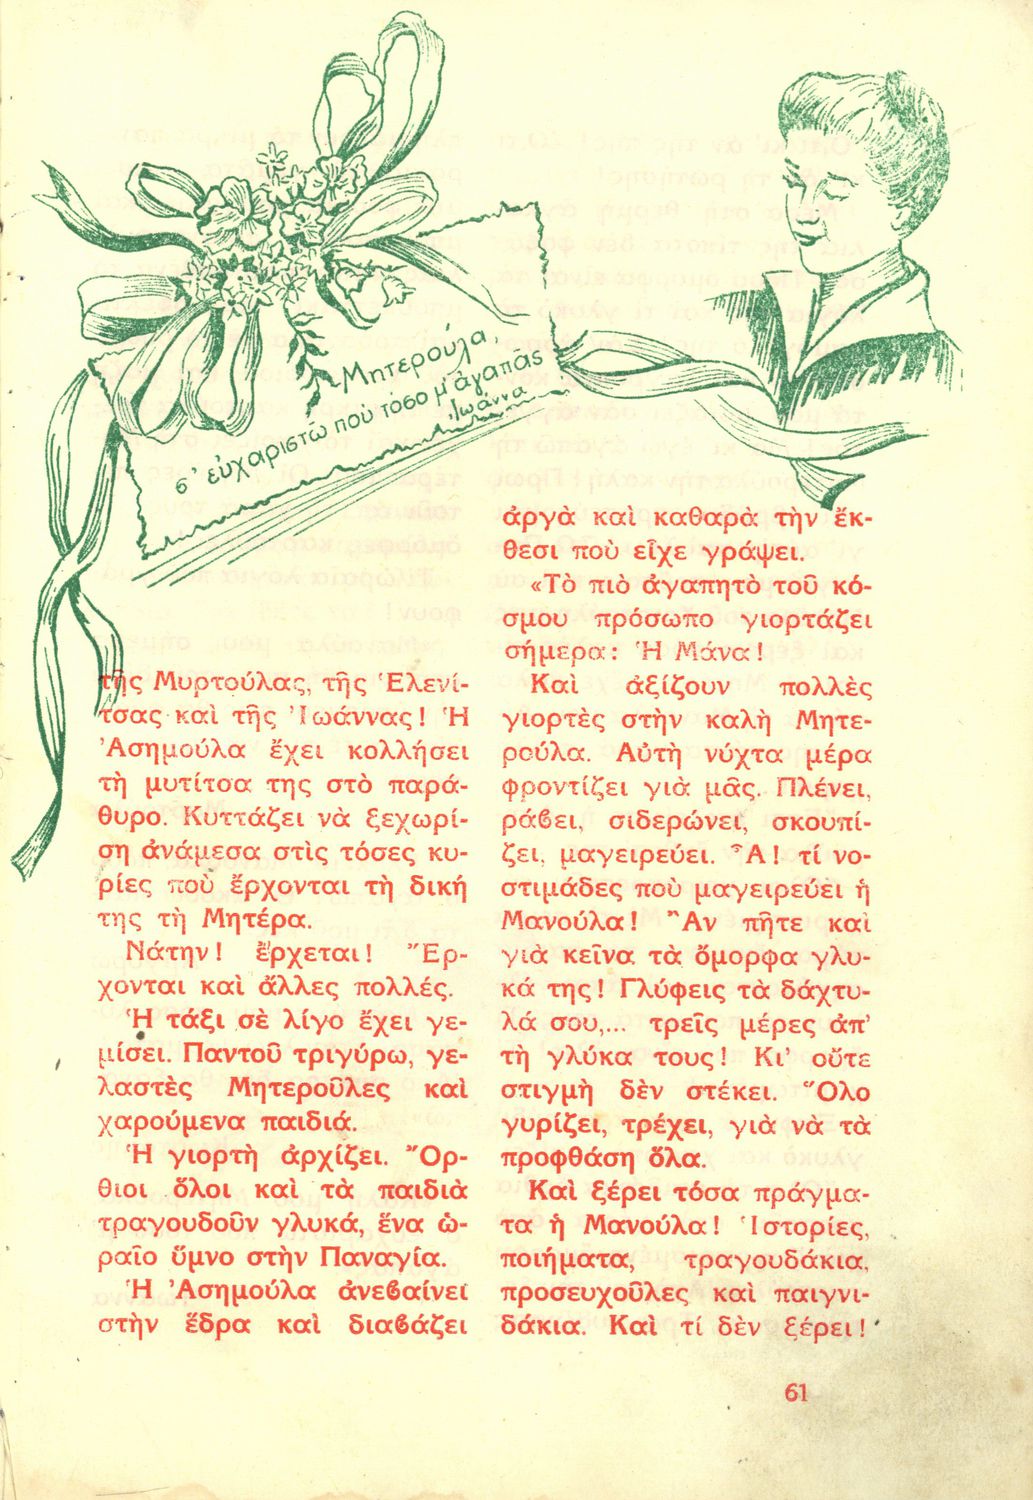 Μητερούλα,
σ' εὐχαριστῶ ποὺ τόσο μ' ἀγαπᾶς
Ἰωάννα
τῆς Μυρτούλας, τῆς Ἑλενί-
τσας καὶ τῆς Ἰωάννας! Ἡ
Ἀσημούλα ἔχει κολλήσει
τὴ μυτίτσα της στὸ παρά-
θυρο. Κυττάζει νὰ ξεχωρί-
ση ἀνάμεσα στὶς τόσες κυ-
ρίες ποὺ ἔρχονται τὴ δική
της τὴ Μητέρα.
Νάτην! ἔρχεται! Ἔρ-
χονται καὶ ἄλλες πολλές.
Ἡ τάξι σὲ λίγο ἔχει γε-
μίσει. Παντοῦ τριγύρω, γε-
λαστὲς Μητεροῦλες καὶ
χαρούμενα παιδιά.
Ἡ γιορτὴ ἀρχίζει. Ὄρ-
θιοι ὅλοι καὶ τὰ παιδιὰ
τραγουδοῦν γλυκά, ἕνα ὡ-
ραῖο ὕμνο στὴν Παναγία.
Ἡ Ἀσημούλα ἀνεβαίνει
στὴν ἕδρα καὶ διαβάζει
ἀργὰ καὶ καθαρὰ τὴν ἔκ-
θεσι ποὺ εἶχε γράψει.
«Τὸ πιὸ ἀγαπητὸ τοῦ κό-
σμου πρόσωπο γιορτάζει
σήμερα: Ἡ Μάνα!
Καὶ ἀξίζουν πολλὲς
γιορτὲς στὴν καλὴ Μητε-
ρούλα. Αὐτὴ νύχτα μέρα
φροντίζει γιὰ μᾶς. Πλένει,
ράβει, σιδερώνει, σκουπί-
ζει, μαγειρεύει. Ἆ! τί νο-
στιμάδες ποὺ μαγειρεύει ἡ
Μανούλα! Ἂν πῆτε καὶ
γιὰ κεῖνα τὰ ὄμορφα γλυ-
κά της! Γλύφεις τὰ δάχτυ-
λά σου,... τρεῖς μέρες ἀπ'
τὴ γλύκα τους! Κι' οὔτε
στιγμὴ δὲν στέκει. Ὅλο
γυρίζει, τρέχει, γιὰ νὰ τὰ
προφθάση ὅλα.
Καὶ ξέρει τόσα πράγμα-
τα ἡ Μανούλα! Ἱστορίες,
ποιήματα, τραγουδάκια,
προσευχοῦλες καὶ παιγνι-
δάκια. Καὶ τί δὲν ξέρει!
61